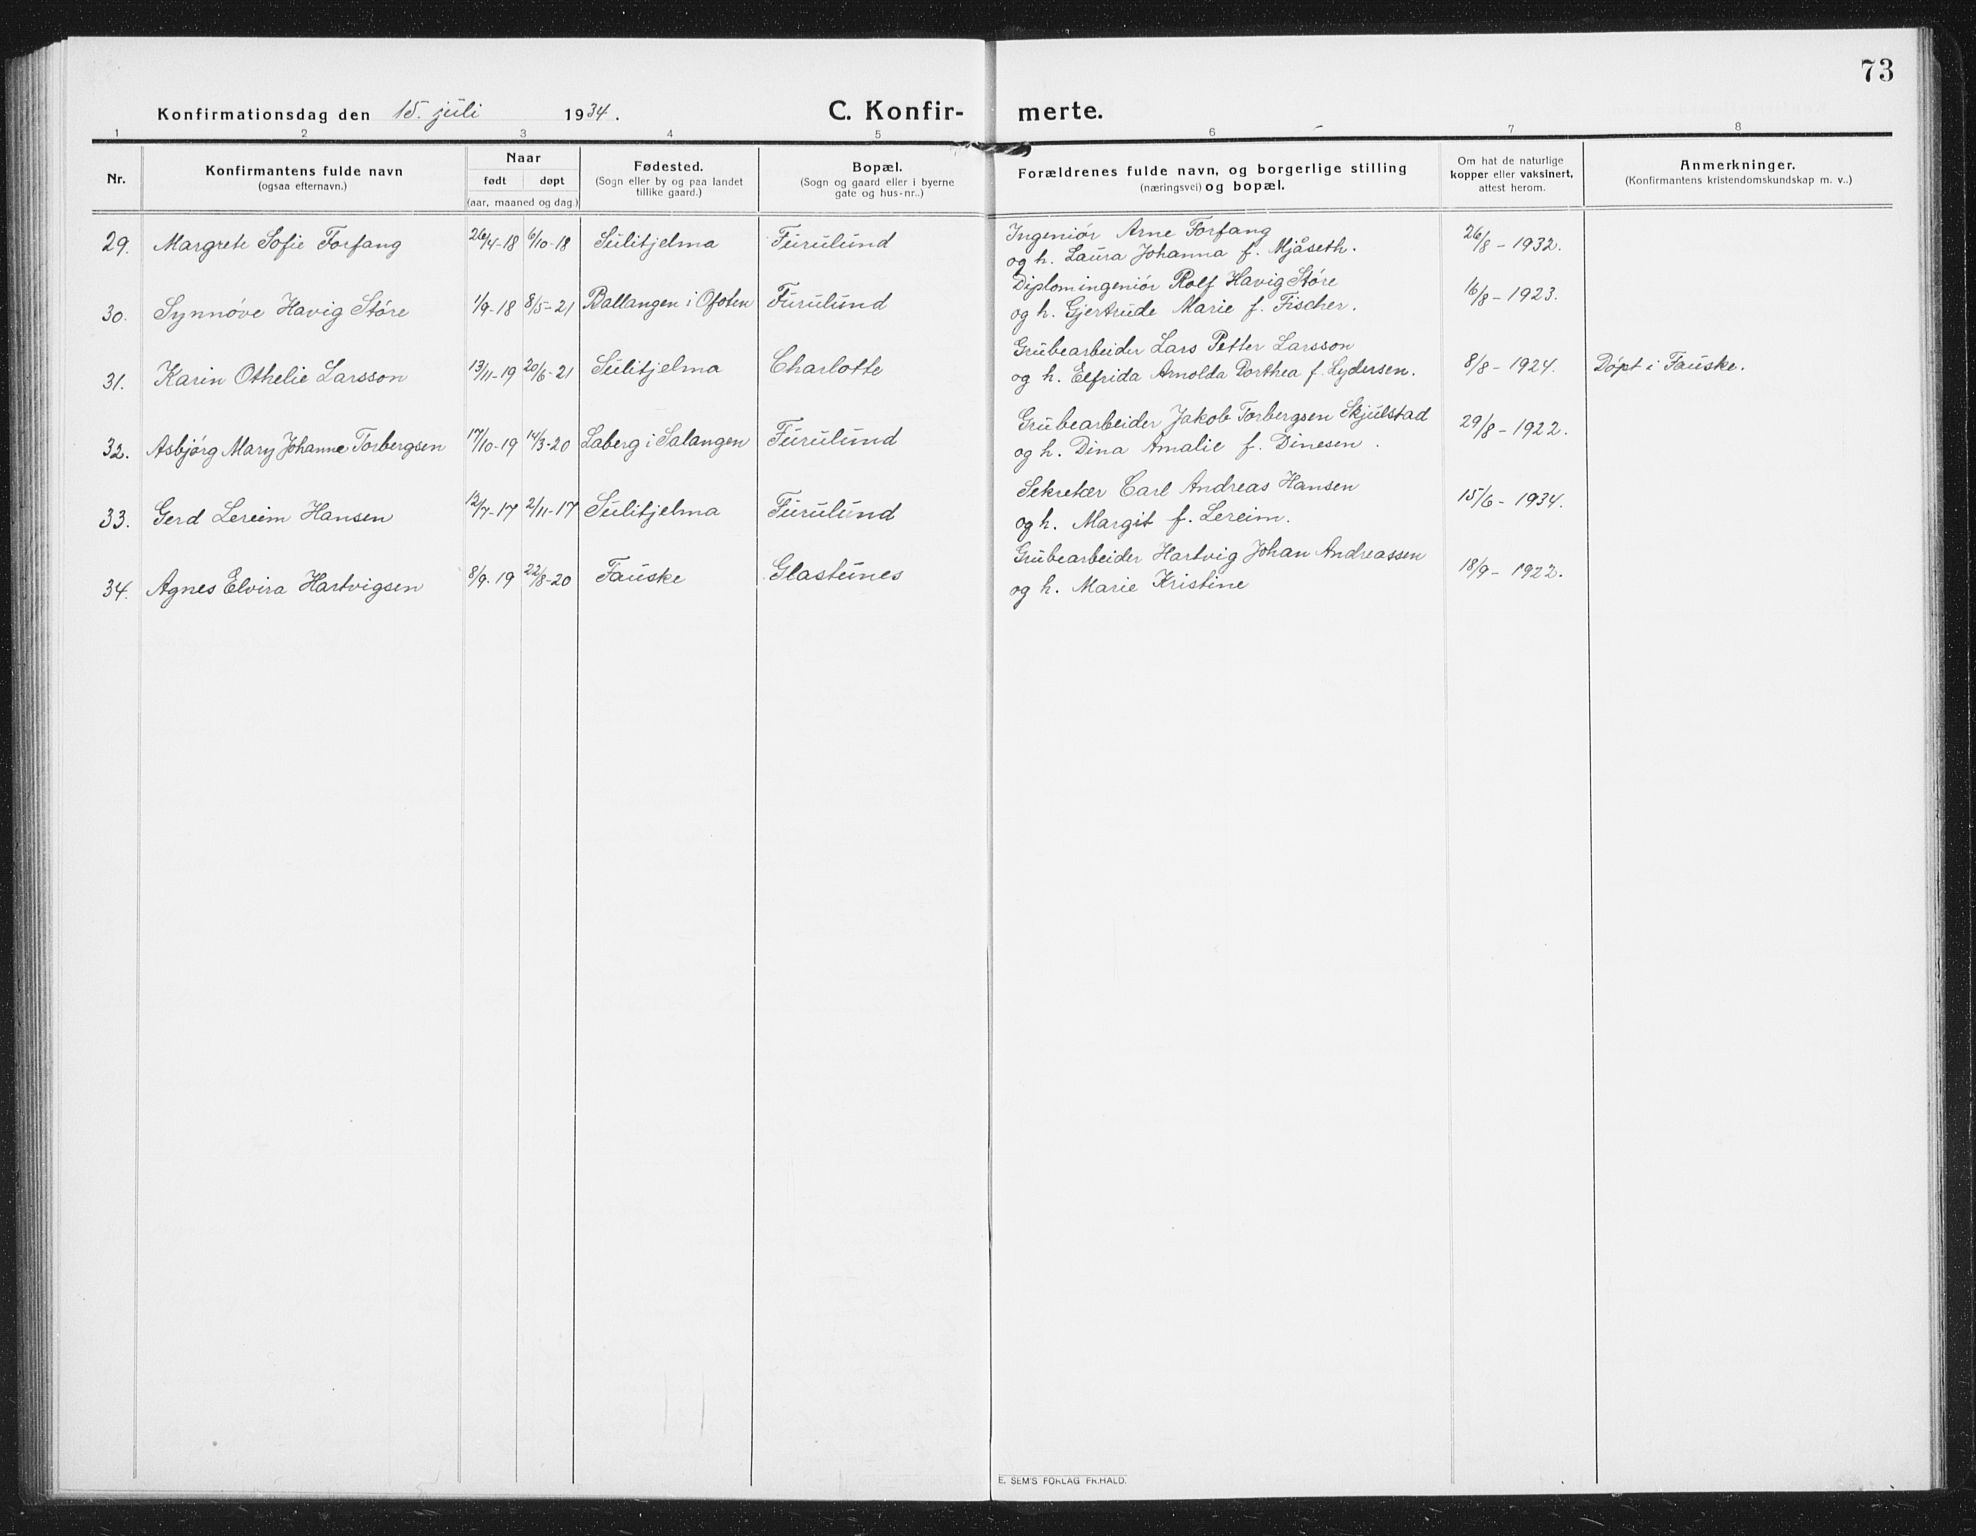 73
Konfirmationsdag den 15. juli 1934. C. Konfir- merte.
1 2 3 4 5 6 7 8
Nr. Konfirmantens fulde navn (ogsaa efternavn.) Naar født døpt (aar, maaned og dag.) Fødested. (Sogn eller by og paa landet tillike gaard.) Bopæl. (Sogn og gaard eller i byerne gate og hus-nr..) Forældrenes fulde navn, og borgerlige stilling (næringsvei) og bopæl. Om hat de naturlige kopper eller vaksinert, attest herom. Anmerkninger. (Konfirmantens kristendomskundskap m. v..)
29. Margrete Sofie Forfang 26/4-18 6/10-18 Sulitjelma Furulund Ingeniør Arne Forfang 26/8 - 1932.
og h. Laura Johanna f. Mjåseth.
30. Synnøve Havig Støre 1/9-18 8/5-21 Ballangen i Ofoten Furulund Diplomingeniør Rolf Havig Støre 16/8 - 1923.
og h. Gjertrude Marie f. Fischer.
31. Karin Othelie Larsson 13/11-19 20/6-21 Sulitjelma Charlotte Grubearbeider Lars Petter Larsson 8/8 - 1924. Døpt i Fauske.
og h. Elfrida Arnolda Dorthea f. Lydersen.
32. Asbjørg Mary Johanne Torbergsen 17/10-19 14/3-20 Laberg i Salangen Furulund Grubearbeider Jakob Torbergsen Skjulstad 29/8 - 1922.
og h. Dina Amalie f. Dinesen.
33. Gerd Lereim Hansen 12/7-17 2/11-17 Sulitjelma Furulund Sekretær Carl Andreas Hansen 15/6 - 1934.
og h. Margit f. Lereim.
34. Agnes Elvira Hartvigsen 8/9.19 22/8-20 Fauske Glastunes Grubearbeider Hartvig Johan Andreassen 18/9 - 1922.
og h. Marie Kristine
E. SEM'S FORLAG FR.HALD.